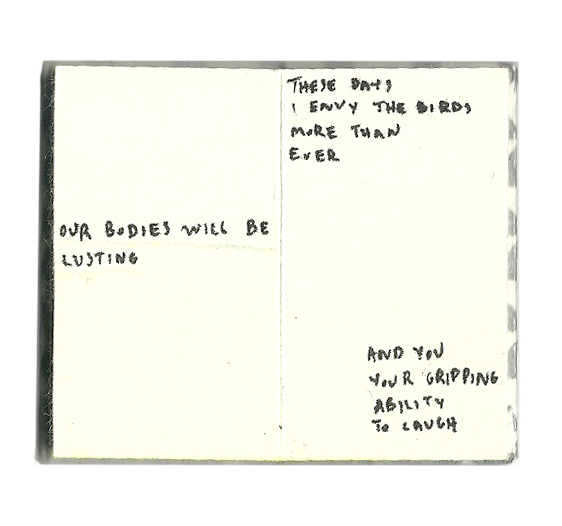 OUR BODIES WILL BE
LUSTING
THESE DAYS
I ENVY THE BIRDS
MORE THAN
EVER
AND YOU
YOUR GRIPPING
ABILITY
TO LAUGH